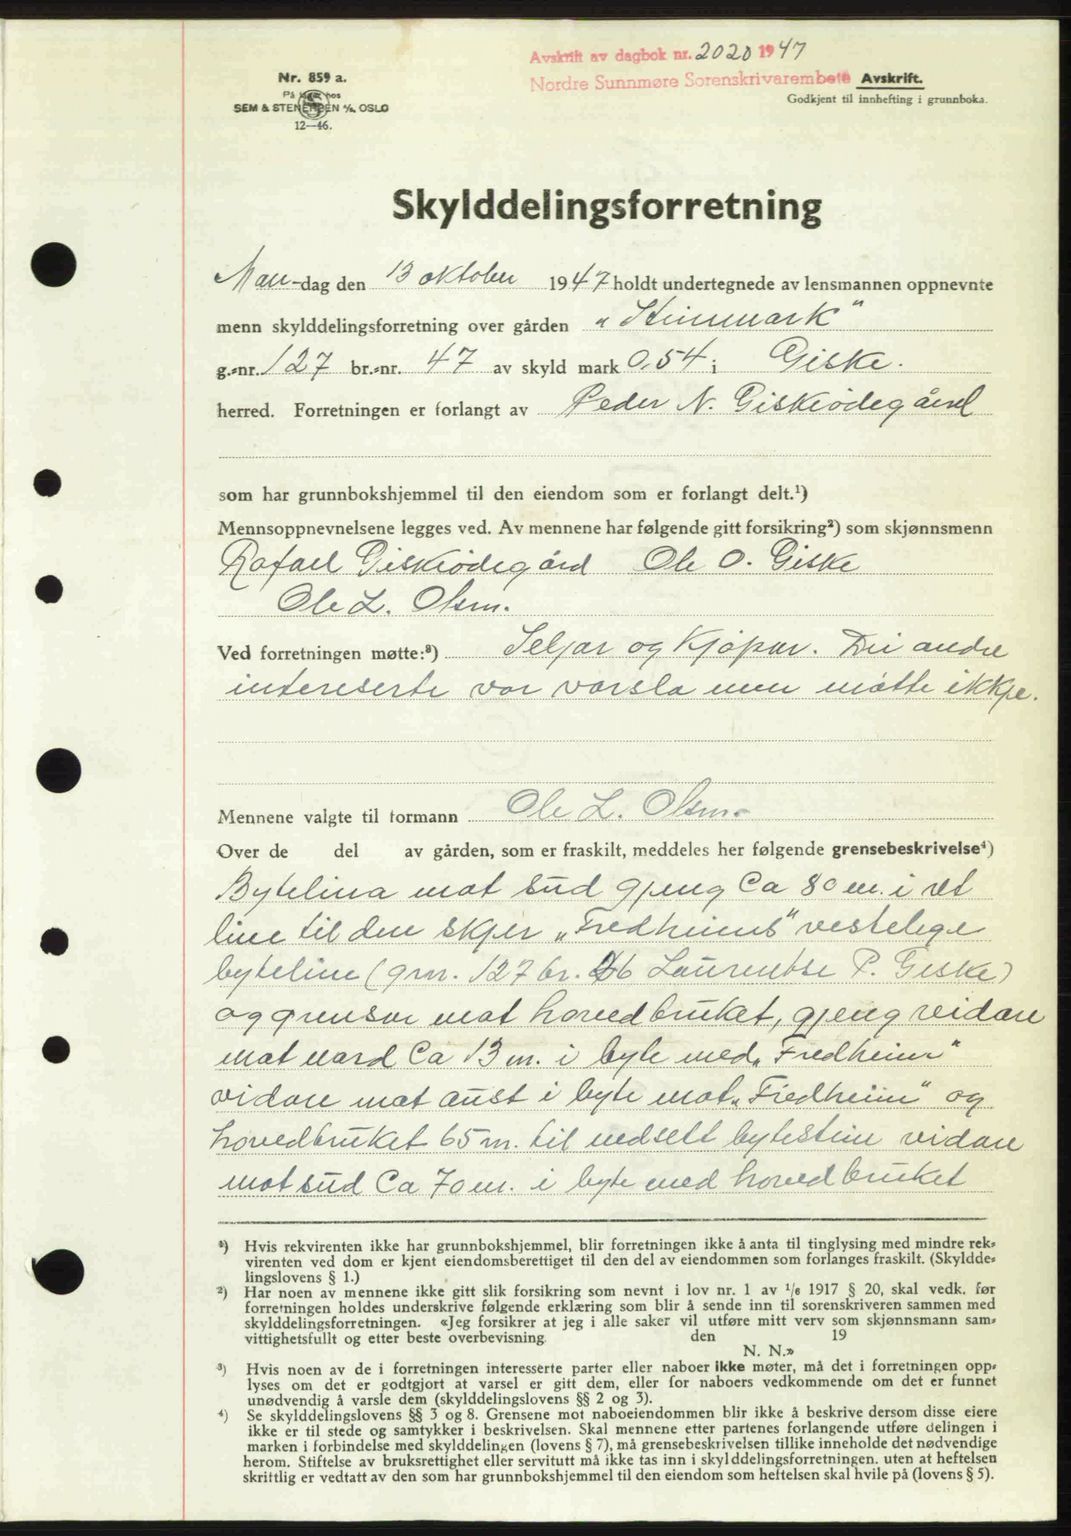 Avskrift av dagbok nr. 2020 1947
Nordre Sunnmøre Sorenskrivarembete Avskrift.
Godkjent til innhefting i grunnboka.
Nr. 859 a.
På lager hos
SEM & STENERSEN A/S. OSLO
12—46.
Skylddelingsforretning
Man-dag den 13 oktober 1947 holdt undertegnede av lensmannen oppnevnte
menn skylddelingsforretning over gården "Steinmark"
g.-nr. 127 br.-nr. 47 av skyld mark 0,54 i Giske.
herred. Forretningen er forlangt av Peder N. Giskeødegård
som har grunnbokshjemmel til den eiendom som er forlangt delt.¹)
Mennsoppnevnelsene legges ved. Av mennene har følgende gitt forsikring²) som skjønnsmenn
Rafael Giskeødegård Ole O. Giske
Ole L. Olsen.
Ved forretningen møtte:³) Seljar og Kjøpar. Dei andre
intereserte var varsla men møtte ikkje.
Mennene valgte til formann Ole L. Olsen.
Over de del av gården, som er fraskilt, meddeles her følgende grensebeskrivelse⁴)
Bytelina mot sud gjeng Ca 80 m. i ret
line til den skjer „Fredheims" vestelege
byteline (gnr. 127 br. 46 Laurentse P. Giske)
og grensar mot hovedbruket, gjeng vidare
mot nord Ca 13 m. i byte med „Fredheim"
vidare mot aust i byte mot „Fredheim" og
hovedbruket 65 m. til nedsett bytestein vidare
mot sud Ca 70 m. i byte med hovedbruket
¹) Hvis rekvirenten ikke har grunnbokshjemmel, blir forretningen ikke å anta til tinglysing med mindre rek-
virenten ved dom er kjent eiendomsberettiget til den del av eiendommen som forlanges fraskilt. (Skyldde-
lingslovens § 1.)
²) Har noen av mennene ikke gitt slik forsikring som nevnt i lov nr. 1 av 1/6 1917 § 20, skal vedk. før
forretningen holdes underskrive følgende erklæring som blir å sende inn til sorenskriveren sammen med
skylddelingsforretningen. «Jeg forsikrer at jeg i alle saker vil utføre mitt verv som skjønnsmann sam-
vittighetsfullt og etter beste overbevisning. den 19
N. N.»
³) Hvis noen av de i forretningen interesserte parter eller naboer ikke møter, må det i forretningen opp-
lyses om det er godtgjort at varsel er gitt dem, eller for naboers vedkommende om det er funnet
unødvendig å varsle dem (skylddelingslovens §§ 2 og 3).
⁴) Se skylddelingslovens §§ 3 og 8. Grensene mot naboeiendommen blir ikke å beskrive dersom disse eiere
ikke er til stede og samtykker i beskrivelsen. Skal mennene etter partenes forlangende utføre delingen i
marken i forbindelse med skylddelingen (lovens § 7), må grensebeskrivelsen tillike inneholde det nødvendige
herom. Stiftelse av bruksrettighet eller servitutt må ikke tas inn i skylddelingsforretningen. uten at heftelsen
skriftlig er vedtatt av den som har grunnbokshjemmel til den eiendom som heftelsen skal hvile på (lovens § 5).